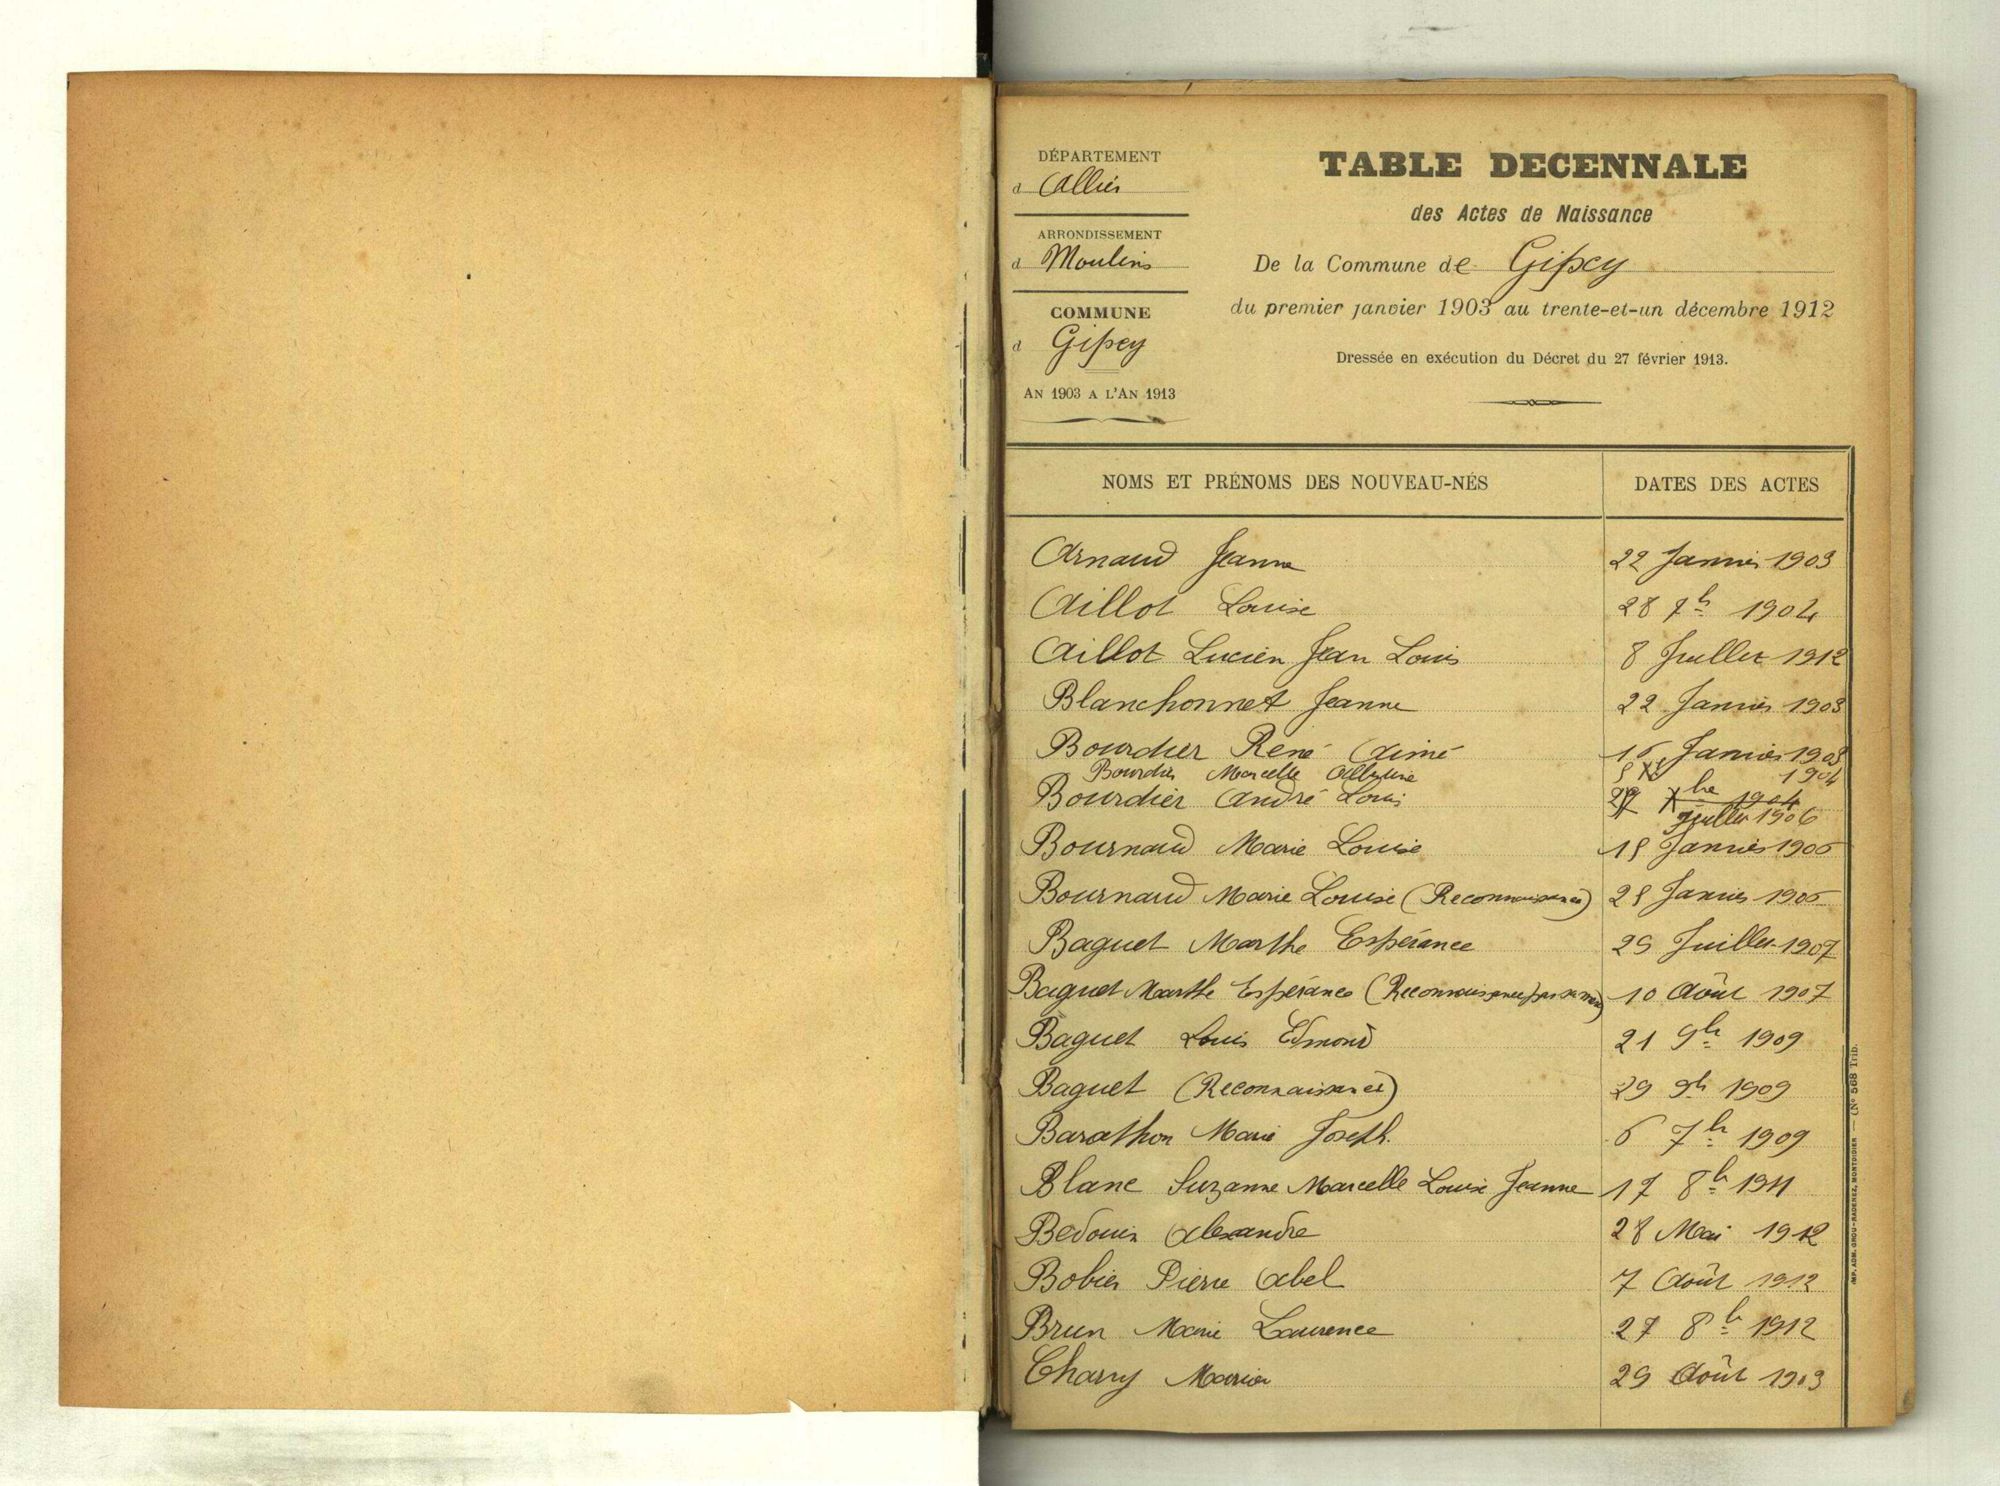 DÉPARTEMENT
d Allier
ARRONDISSEMENT
d Moulins
COMMUNE
d Gipcy
AN 1903 A L'AN 1913
TABLE DECENNALE
des Actes de Naissance
De la Commune de Gipcy
du premier janvier 1903 au trente-et-un décembre 1912
Dressée en exécution du Décret du 27 février 1913.
NOMS ET PRÉNOMS DES NOUVEAU-NÉS DATES DES ACTES
Arnaud Jeanne 22 Janvier 1903
Aillot Louise 28 7bre 1904
Aillot Lucien Jean Louis 8 Juillet 1912
Blanchonnet Jeanne 22 Janvier 1903
Bourdier René Aimé 16 Janvier 1903
Bourdier Marcelle 1904
Bourdier André Louis Juillet 1906
Bournaud Marie Louise 15 Janvier 1906
Bournaud Marie Louise (Reconnaissance) 25 Janvier 1906
Baguet Marthe Espérance 29 Juillet 1907
Baguet Marthe Espérance (Reconnaissance par sa mère) 10 Août 1907
Baguet Louis Edmond 21 9bre 1909
Baguet (Reconnaissance) 29 9bre 1909
Barathon Marie Joseph. 6 7bre 1909
Blanc Suzanne Marcelle Louise Jeanne 17 8bre 1911
Bedouin Alexandre 28 Mai 1912
Bobier Pierre Abel 7 Août 1912
Brun Marie Laurence 27 8bre 1912
Charry Marien 29 Août 1903
IMP. ADM. GROU-RADENEZ, MONTDIDIER — (N° 568 Trib.